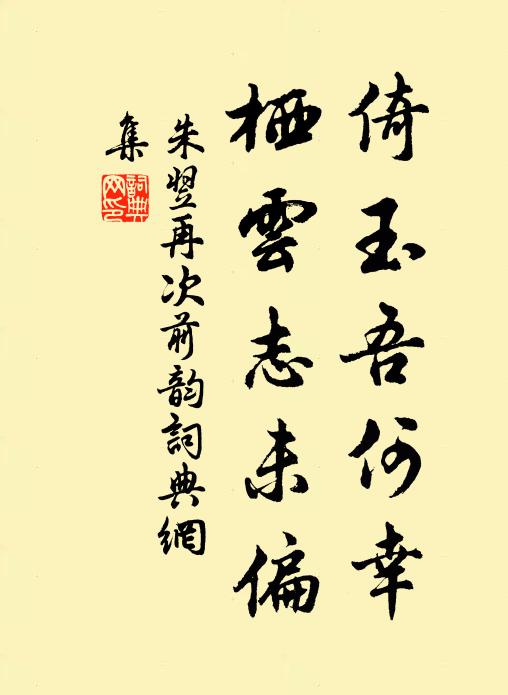 倚玉吾何幸
栖雲志未偏
朱翌再次前韵詞典網
集
詞典网印